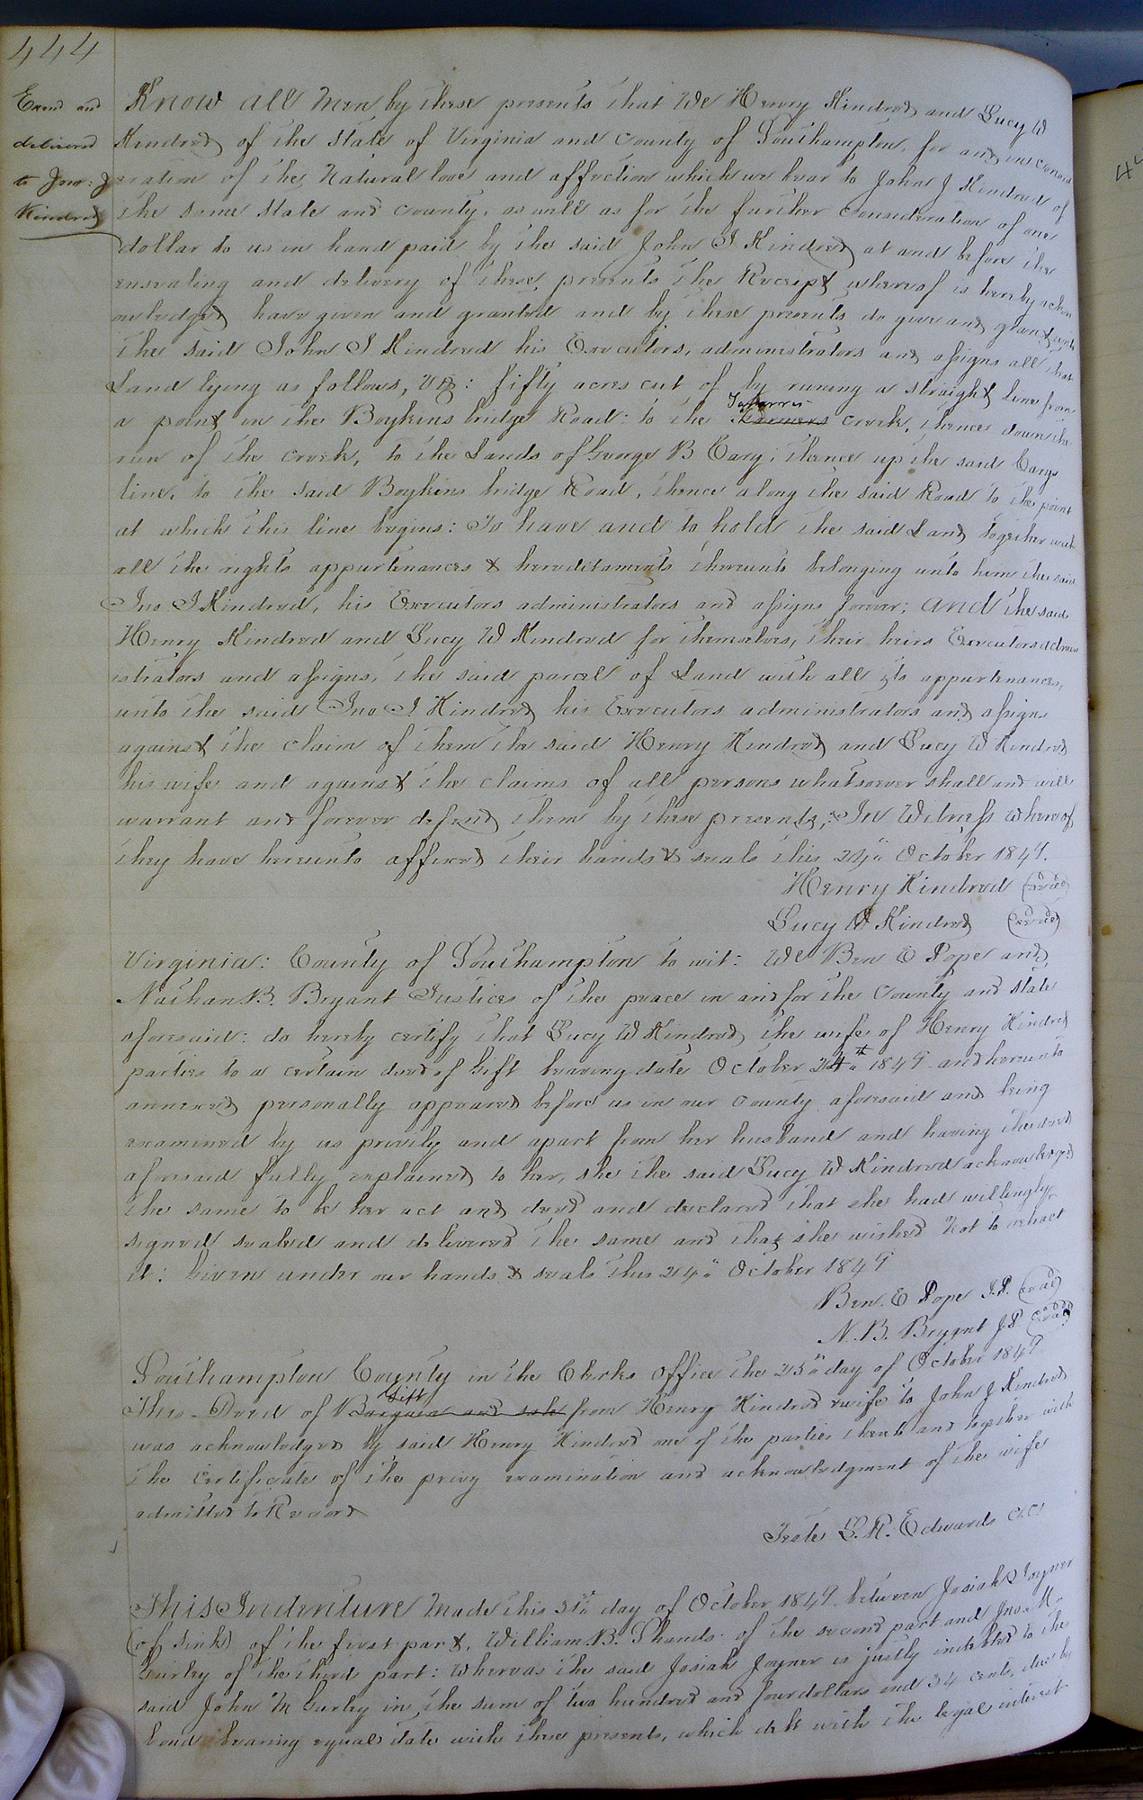 444
Exmd and
delivered
to Jno: J
Kindred
Know all Men by these presents that We Henry Kindred and Lucy W
Kindred of the State of Virginia and County of Southampton, for and in consid
eration of the Natural love and affection which we bear to John J Kindred of
the same State and County, as well as for the further Consideration of one
dollar to us in hand paid by the said John J Kindred at and before the
ensealing and delivery of these, presents the Receipt whereof is hereby ackn
owledged have given and granted and by these presents do give and grant unto
the said John J Kindred his Executors, administrators and assigns all that
Land lying as follows, viz: fifty acres cut of by runing a straight Line from
a point in the Boykins bridge Road: to the Tarrarra creek, thence down the
run of the creek, to the Lands of George B Cary; thence up the said Carys
line, to the said Boykins bridge Road, thence along the said Road to the point
at which this line begins: To have and to hold the said Land together with
all the rights appurtenances & hereditaments thereunto belonging unto him the said
Jno J Kindred, his Executors administrators and assigns forever; and the said
Henry Kindred and Lucy W Kindred for themselves, their heirs Executors admin
istrators and assigns, the said parcel of Land with all its appurtenances,
unto the said Jno J Kindred his Executors administrators and assigns
against the claim of them the said Henry Kindred and Lucy W Kindred
his wife and against the claims of all persons whatsoever shall and will
warrant and forever defend them by these presents; In Witness whereof
they have hereunto affixed their hands & seals this 24th October 1849.
Henry Kindred (seal)
Lucy W Kindred (seal)
Virginia: County of Southampton to wit: We Ben E Pope and
Nathan B. Bryant Justices of the peace in and for the County and State
aforesaid: do hereby certify that Lucy W Kindred, the wife of Henry Kindred
parties to a certain deed of Gift bearing date October 24th 1849 and hereunto
annexed personally appeared before us in our County aforesaid and being
examined by us privily and apart from her husband and having the deed
aforesaid fully explained to her, she the said Lucy W Kindred acknowledged
the same to be her act and deed and declared that she had willingly
signed sealed and delivered the same and that she wished not to retract
it: Given under our hands & seals this 24th October 1849
Ben. E Pope J.P. (seal)
N. B. Bryant J.P. (seal)
Southampton County in the Clerks office the 25th day of October 1849
This Deed of Bargain and sale Gift from Henry Kindred & wife to John J Kindred
was acknowledged by said Henry Kindred one of the parties thereto and together with
the certificate of the privy examination and acknowledgment of the wife
admitted to Record
Teste L. R. Edwards C.C.
This Indenture Made this 5th day of October 1849 between Josiah Joyner
of the first part, William B. Shands of the second part and Jno. M.
Gurley of the third part: Whereas the said Josiah Joyner is justly indebted to the
said John M Gurley in the sum of two hundred and four dollars and 34 cents, due by
bond bearing equal date with these presents, which debt with the legal interest